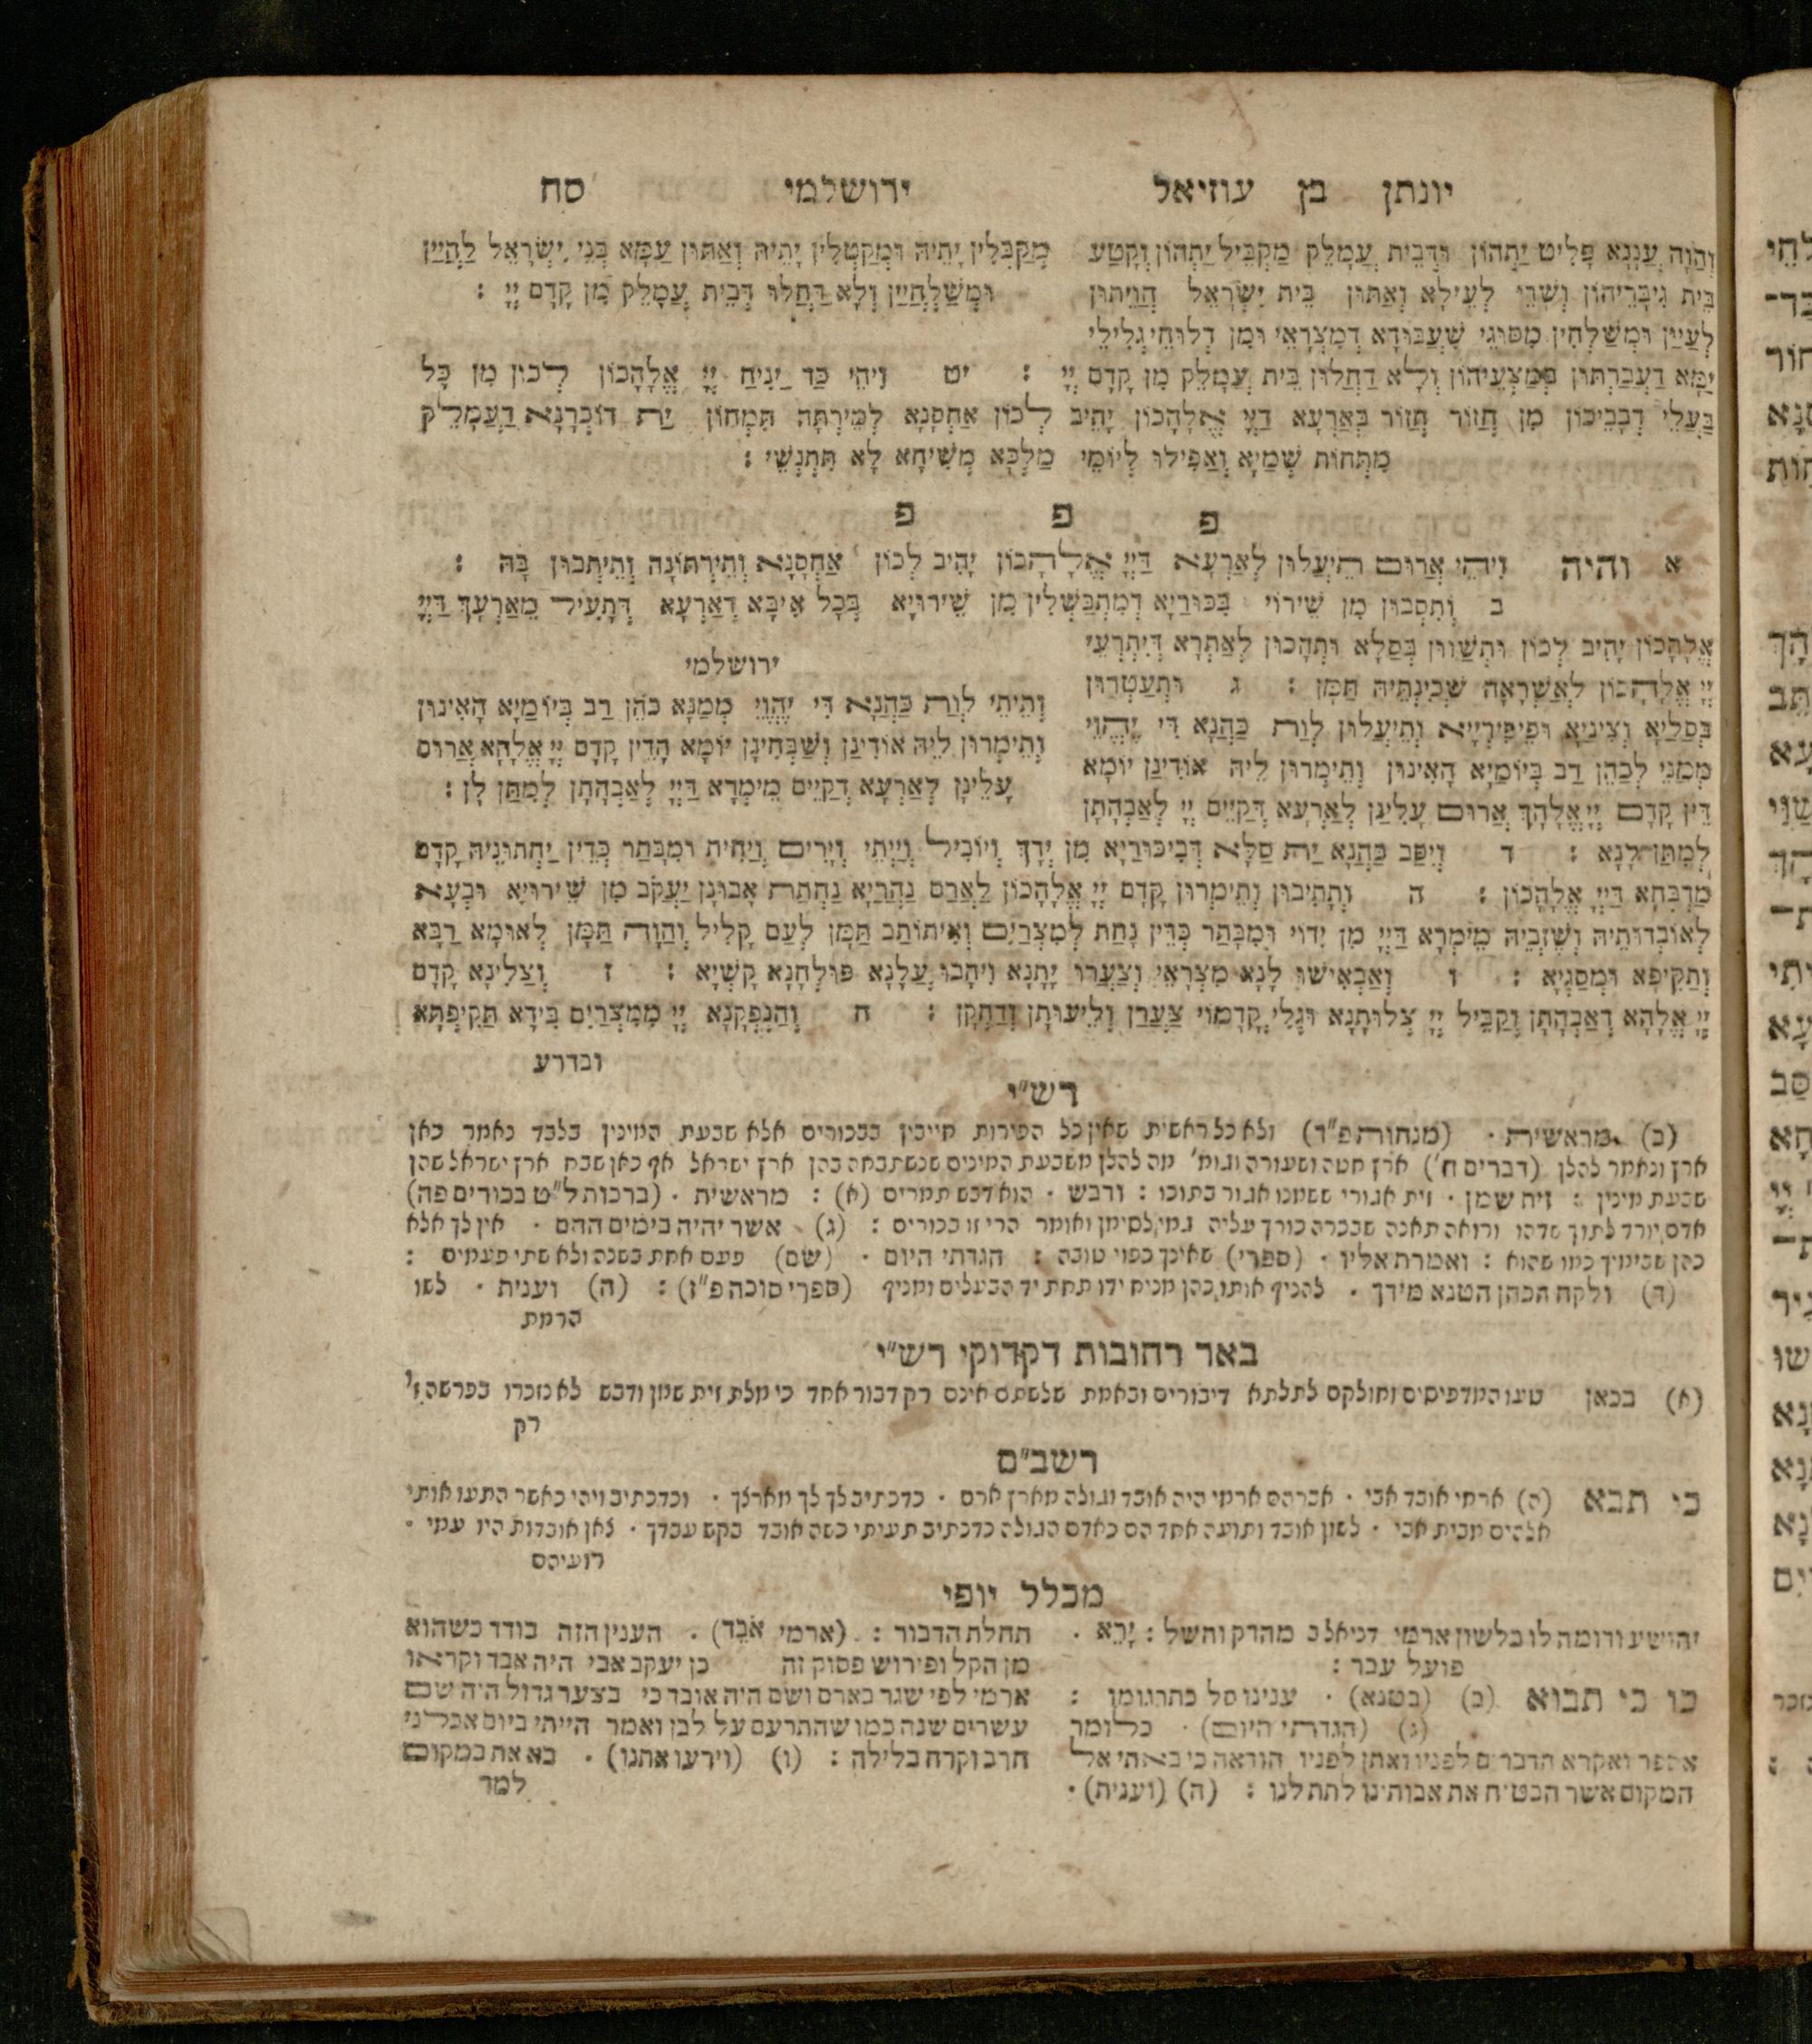 יונתן בן עוזיאל ירושלמי סח
וַהֲוָה עֲנָנָא פָּלִיט יַתְהוֹן וּדְבֵית עֲמָלֵק מַקְבֵּיל יַתְהוֹן וְקָטַע
בֵּית גִּיבָּרֵיהוֹן וְשָׁדֵי לְעֵילָא וְאַתּוּן בֵּית יִשְׂרָאֵל הֲוֵיתוּן
לְעַיָין וּמְשַׁלְחִין מִסּוּגֵי שִׁעְבּוּדָא דְמִצְרָאֵי וּמִן דְלוּחֵי גַלֵילֵי
מְקַבְּלִין יָתֵיהּ וּמְקַטְלִין יָתֵיהּ וְאַתּוּן עַמָּא בְּנֵי יִשְׂרָאֵל לַהֲיַין
וּמְשַׁלְהֲיַין וְלָא דַחֲלוּ דְּבֵית עֲמָלֵק מִן קֳדָם יְיָ :
יַמָּא דַעֲבַרְתּוּן בְּמִצְעֵיהוֹן וְלָא דַחֲלוּן בֵּית עֲמָלֵק מִן קֳדָם יְיָ : יט וִיהֵי כַּד יַנִיחַ יְיָ אֱלָהָכוֹן לְכוֹן מִן כָּל
בַּעֲלֵי דְבָבֵיכוֹן מִן חֲזוֹר חֲזוֹר בְּאַרְעָא דַיְיָ אֱלָהָכוֹן יָהִיב לְכוֹן אַחְסָנָא לְמֵירְתָּהּ תִּמְחוֹן יַת דוּכְרָנָא דַעֲמָלֵק
מִתְּחוֹת שְׁמַיָא וְאַפִילוּ לְיוֹמֵי מַלְכָּא מְשִׁיחָא לָא תִּתְנְשֵׁי :
פ פ פ
א והיה וִיהֵי אֲרוּם תֵיעֲלוּן לְאַרְעָא דַיְיָ אֱלָהָכוֹן יָהִיב לְכוֹן אַחְסָנָא וְתֵירְתוּנָהּ וְתֵיתְבוּן בָּהּ :
ב וְתִסְבוּן מִן שֵׁירוּי בִּכּוּרַיָא דְמִתְבַּשְׁלִין מִן שֵׁירוּיָא בְּכָל אִיבָּא דְאַרְעָא דְּתָעֵיל מֵאַרְעָךְ דַּיְיָ
אֱלָהָכוֹן יָהִיב לְכוֹן וּתְשַׁווּן בְּסַלָּא וּתְהָכוּן לְאַתְרָא דְּיִתְרְעֵי
יְיָ אֱלָהָכוֹן לְאַשְׁרָאָה שְׁכִינְתֵּיהּ תַּמָּן : ג וּתְעַטְּרוּן
בְּסַלַּיָא וְצִינַיָא וּפֵיפִּירַיָיא וְתֵיעֲלוּן לְוַת כַּהֲנָא דִי יֶהֱוֵי
מְמַנֵּי לְכָהֵן רַב בְּיוֹמַיָא הָאִינּוּן וְתֵימְרוּן לֵיהּ אוֹדֵינַן יוֹמָא
דֵין קֳדָם יְיָ אֱלָהָךְ אֲרוּם עָלֵינַן לְאַרְעָא דְּקַיֵּים יְיָ לְאַבְהָתַן
ירושלמי
וְתֵיתֵי לְוַת כַּהֲנָא דִּי יֶהֱוֵי מְמַנָּא כֹּהֵן רַב בְּיוֹמַיָּא הָאִינוּן
וְתֵימְרוּן לֵיהּ אוֹדִינָן וְשַׁבְּחִינָן יוֹמָא הָדֵין קֳדָם יְיָ אֱלָהָא אֲרוּם
עָלֵינָן לְאַרְעָא דְקַיֵּים מֵימְרָא דַּיְיָ לְאַבְהָתָן לְמִתַּן לָן :
לְמִתַּן לָנָא : ד וְיִסַּב כַּהֲנָא יַת סַלָּא דְּבִיכּוּרַיָא מִן יְדָךְ וְיוֹבִיל וְיַיְתִי וְיָרִים וְיַחִית וּמִבָּתַר כְּדֵין יַחְתוּנֵיהּ קֳדָם
מַדְבְּחָא דַּיְיָ אֱלָהָכוֹן : ה וְתָתִיבוּן וְתֵימְרוּן קֳדָם יְיָ אֱלָהָכוֹן לַאֲרַם נַהֲרַיָא נַחְתַת אֲבוּנָן יַעֲקֹב מִן שֵׁירוּיָא וּבְעָא
לְאוֹבְדוּתֵיהּ וְשֵׁזְבֵיהּ מֵימְרָא דַּיְיָ מִן יְדוֹי וּמִבָּתַר כְּדֵין נָחַת לְמִצְרַיִם וְאִיתּוֹתַב תַּמָּן לְעַם קָלִיל וַהֲוָה תַּמָּן לְאוּמָא רַבָּא
וְתַקִּיפָא וּמְסַגְיָא : ו וְאַבְאִישׁוּ לָנָא מִצְרָאֵי וְצַעֲרוּ יָתָנָא וִיהָבוּ עֲלָנָא פּוּלְחָנָא קַשְׁיָא : ז וְצַלֵּינָא קֳדָם
יְיָ אֱלָהָא דְאַבְהָתָן וְקַבֵּיל יְיָ צְלוֹתָנָא וּגְלֵי קֳדָמוֹי צַעֲרַן וְלֵיעוּתָן וְדַחֲקָן : ח וְהַנְפְּקָנָא יְיָ מִמִּצְרַיִם בִּידָא תַּקִּיפְתָּא
ובדרע
רש"י
(ב) מראשית . (מנחות פ"ד) ולא כל ראשית שאין כל הפירות חייבין בבכורים אלא שבעת המינין בלבד נאמר כאן
ארץ ונאמר להלן (דברים ח') ארץ חטה ושעורה וגומ' מה להלן משבעת המינים שנשתבחה בהן ארץ ישראל אף כאן שבח ארץ ישראל שהן
שבעת מינין : זית שמן . זית אגורי ששמנו אגור בתוכו : ודבש . הוא דבש תמרים (א) : מראשית . (ברכות ל"ט בכורים פה)
אדם יורד לתוך שדהו ורואה תאנה שבכרה כורך עליה גמי לסימן ואומר הרי זו בכורים : (ג) אשר יהיה בימים ההם . אין לך אלא
כהן שבימיך כמו שהוא : ואמרת אליו . (ספרי) שאינך כפוי טובה : הגדתי היום . (שם) פעם אחת בשנה ולא שתי פעמים :
(ד) ולקח הכהן הטנא מידך . להניף אותו כהן מניח ידו תחת יד הבעלים ומניף (ספרי סוכה פ"ז) : (ה) וענית . לשו
הרמת
באר רחובות דקדוקי רש"י
(א) בכאן טעו המדפיסים וחולקם לתלתא דיבורים ובאמת שלשתם אינם רק דבור אחד כי מלת זית שמן ודבש לא נזכרו בפרשה זו
רק
רשב"ם
כי תבא (ה) ארמי אובד אבי . אברהם ארמי היה אובד וגולה מארץ ארם . כדכתיב לך לך מארצך . וכדכתיב ויהי כאשר התעו אותי
אלהים מבית אבי . לשון אובד ותועה אחד הם כאדם הגולה כדכתיב תעיתי כשה אובד בקש עבדך . צאן אובדות היו עמי .
רועיהם
מכלל יופי
יהושע ודומה לו בלשון ארמי דניאל ב מהדק וחשל : יָרֵא .
פועל עבר :
כו כי תבוא (ב) (בטנא) . ענינו סל כתרגומו :
(ג) (הגדתי היום) . כלומר
אספר ואקרא הדברים לפניו ואתן לפניו הודאה כי באתי אל
המקום אשר הבטיח את אבותינו לתת לנו : (ה) (וענית) .
תחלת הדבור : (ארמי אֹבֵד) . הענין הזה בודד כשהוא
מן הקל ופירוש פסוק זה כן יעקב אבי היה אבד וקראו
ארמי לפי שגר בארם ושם היה אובד כי בצער גדול היה שם
עשרים שנה כמו שהתרעם על לבן ואמר הייתי ביום אכלני
חרב וקרח בלילה : (ו) (וירעו אתנו) . בא את במקום
למד